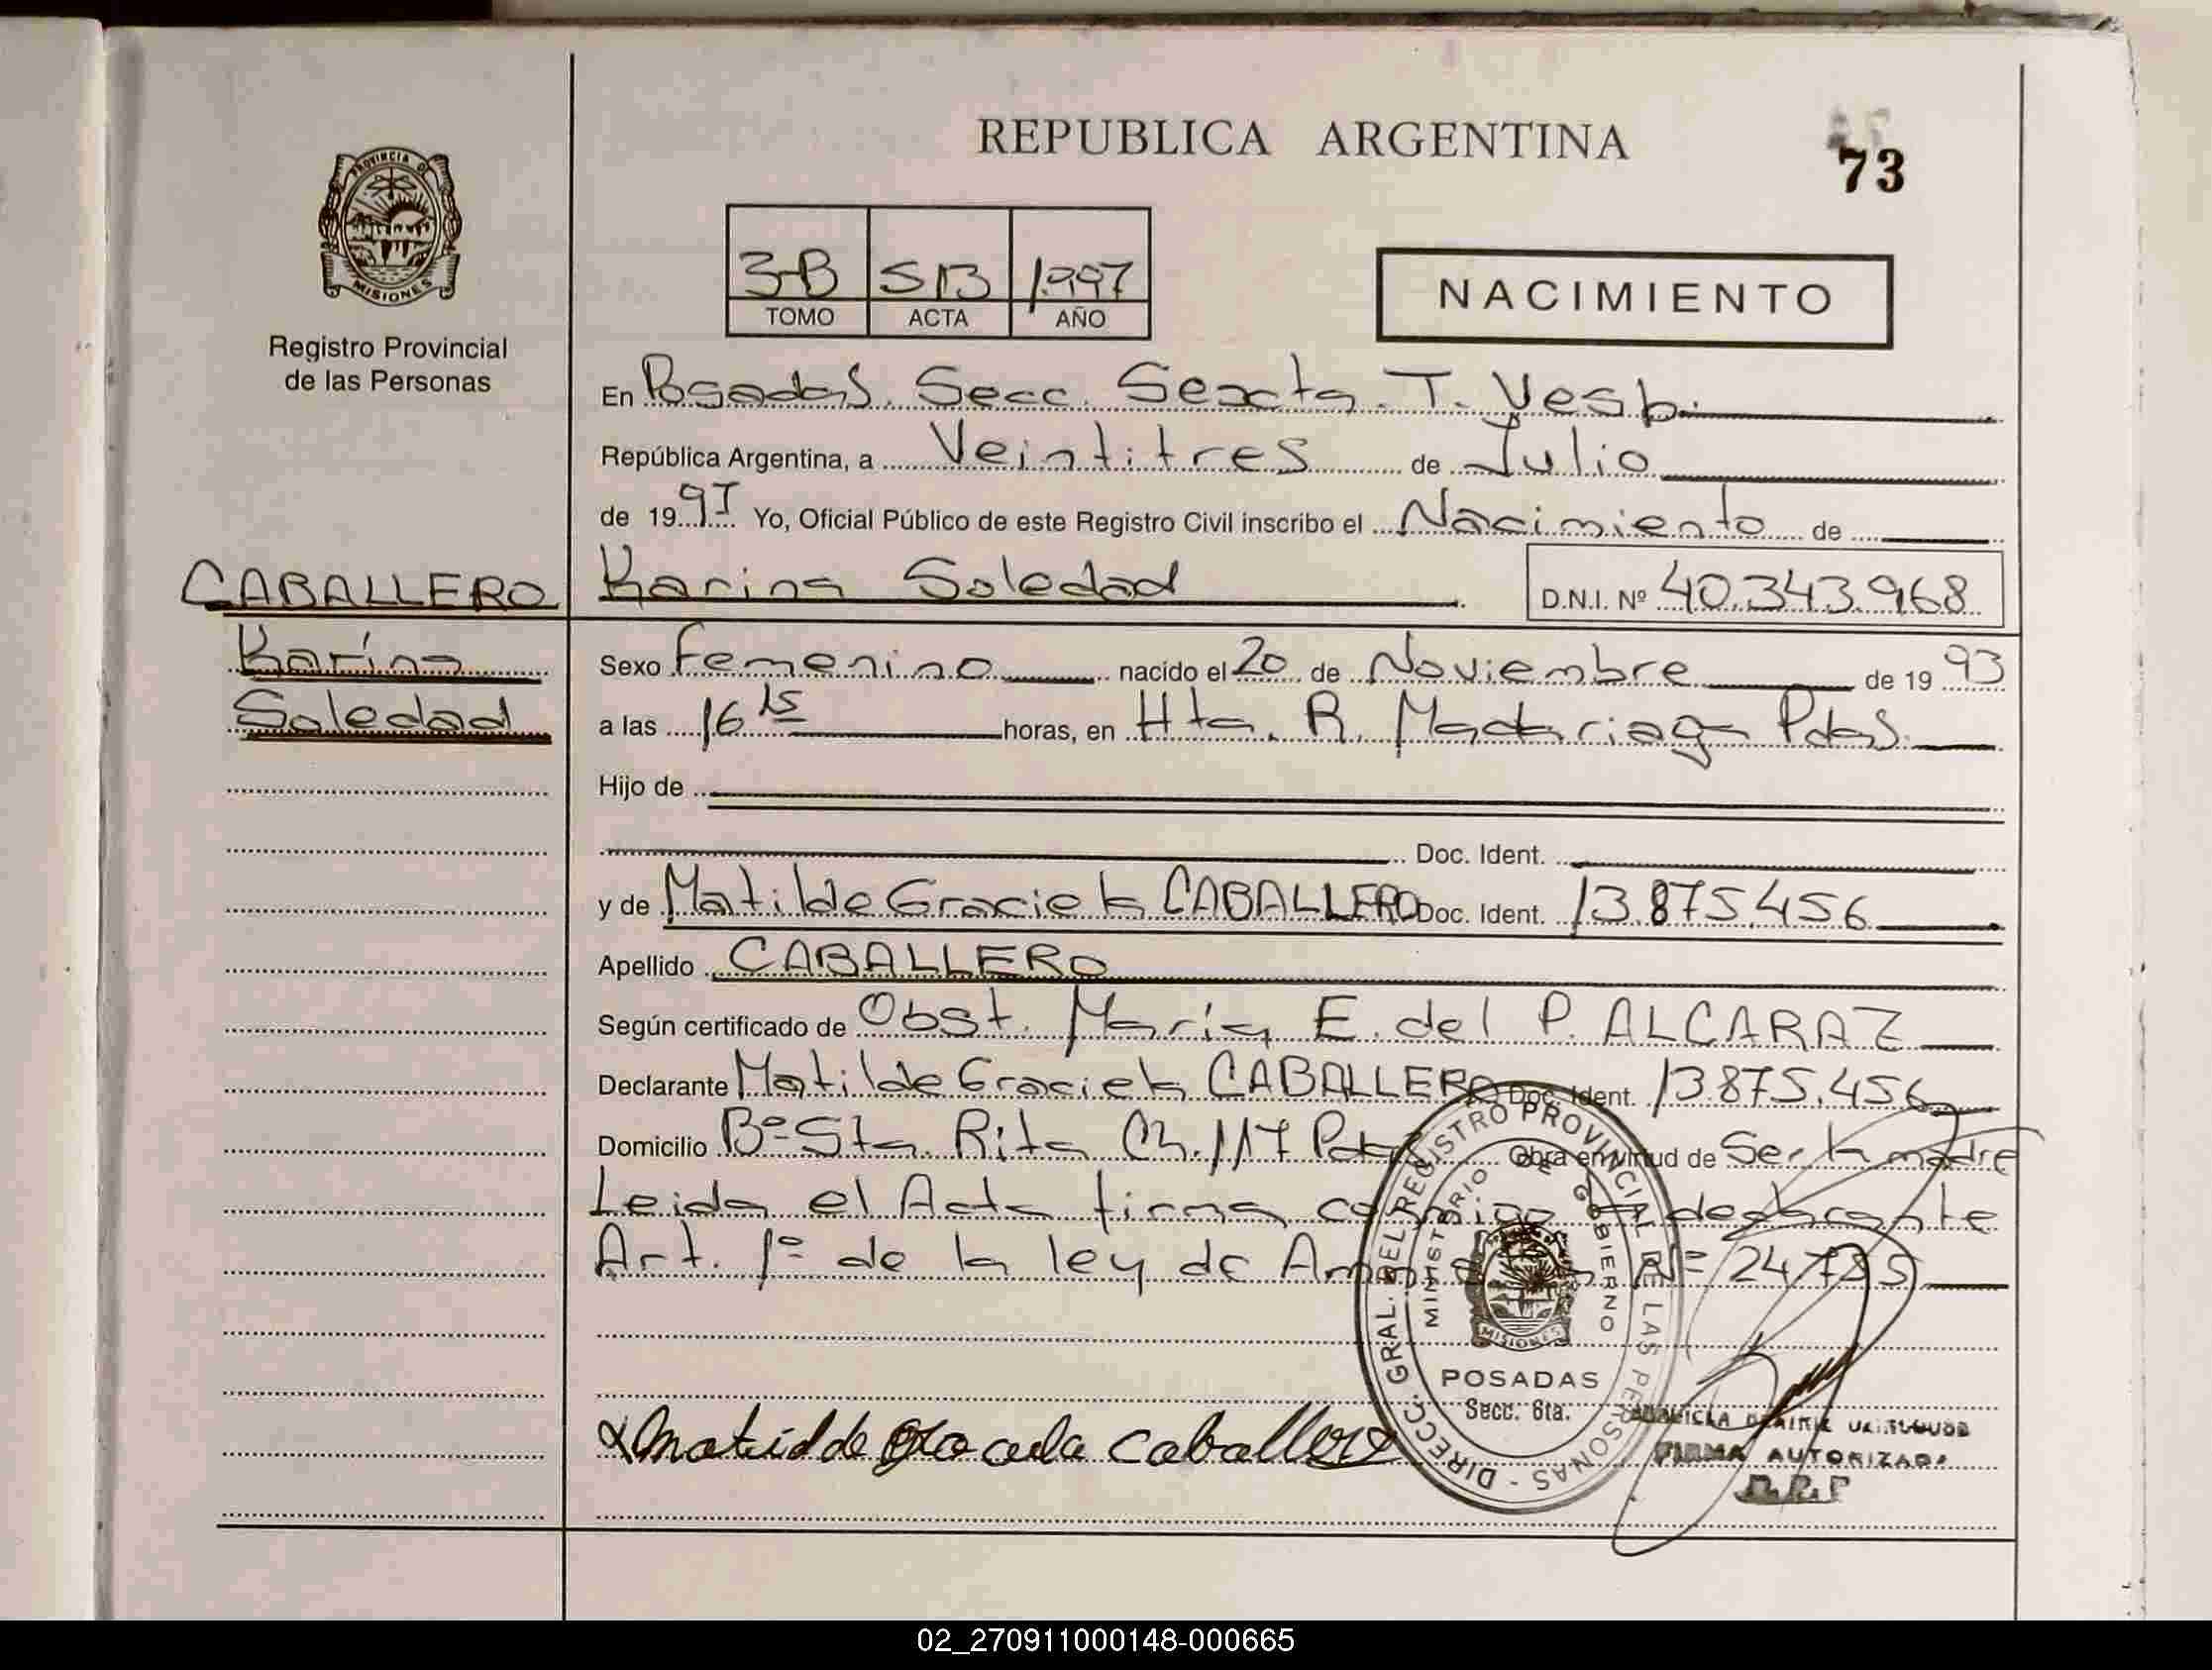 REPUBLICA ARGENTINA
73
PROVINCIA DE
MISIONES
Registro Provincial
de las Personas
3-B 513 1.997
TOMO ACTA AÑO
NACIMIENTO
En Posadas. Secc. Sexta. T. Vesb.
República Argentina, a Veintitres de Julio
de 1997 Yo, Oficial Público de este Registro Civil inscribo el Nacimiento de
CABALLERO Karina Soledad D.N.I. Nº 40.343.968
Karína
Soledad
Sexo Femenino nacido el 20 de Noviembre de 1993
a las 16 15 horas, en Htal. R. Madariaga Pdas.
Hijo de
Doc. Ident.
y de Matilde Graciela CABALLERO Doc. Ident. 13.875.456
Apellido CABALLERO
Según certificado de Obst. María E. del P. ALCARAZ
Declarante Matilde Graciela CABALLERO Doc. Ident. 13.875.456
Domicilio Bº Sta. Rita Ch. 117 Pdas. Obra en virtud de Ser la madre
Leida el Acta firma conmigo la declarante
Art. 1º de la ley de Nº 24.755
DIRECC. GRAL. DEL REGISTRO PROVINCIAL DE LAS PERSONAS -
MINISTERIO DE GOBIERNO
MISIONES
POSADAS
Secc. 6ta.
Matidde caballero
FIRMA AUTORIZADA
02_270911000148-000665